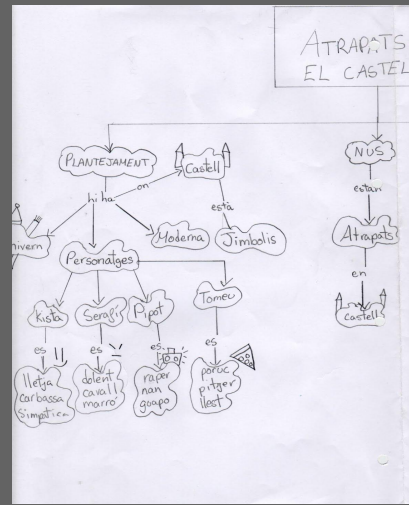 ATRAPATS
EL CASTEL
PLANTEJAMENT
Castell
NUS
hi ha
on
està
estan
nivern
Moderna
Jimbolis
Atrapats
Personatges
en
Kista
Serafí
Pipot
Tomeu
castell
es
es
es
es
lletja
carbassa
simpàtica
dolent
cavall
marró
raper
nan
guapo
poruc
pitjer
llest